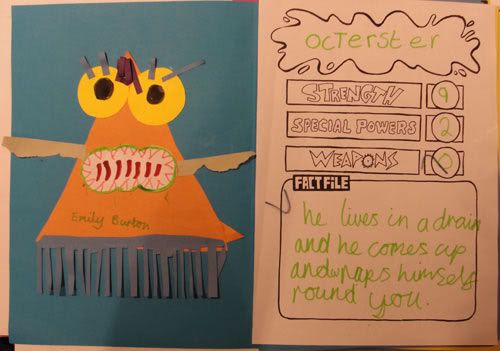 Emily Burton
OCTERSTER
STRENGTH 9
SPECIAL POWERS 2
WEAPONS 0
FACT FILE
he lives in a drain
and he comes up
and wraps himself
round you.